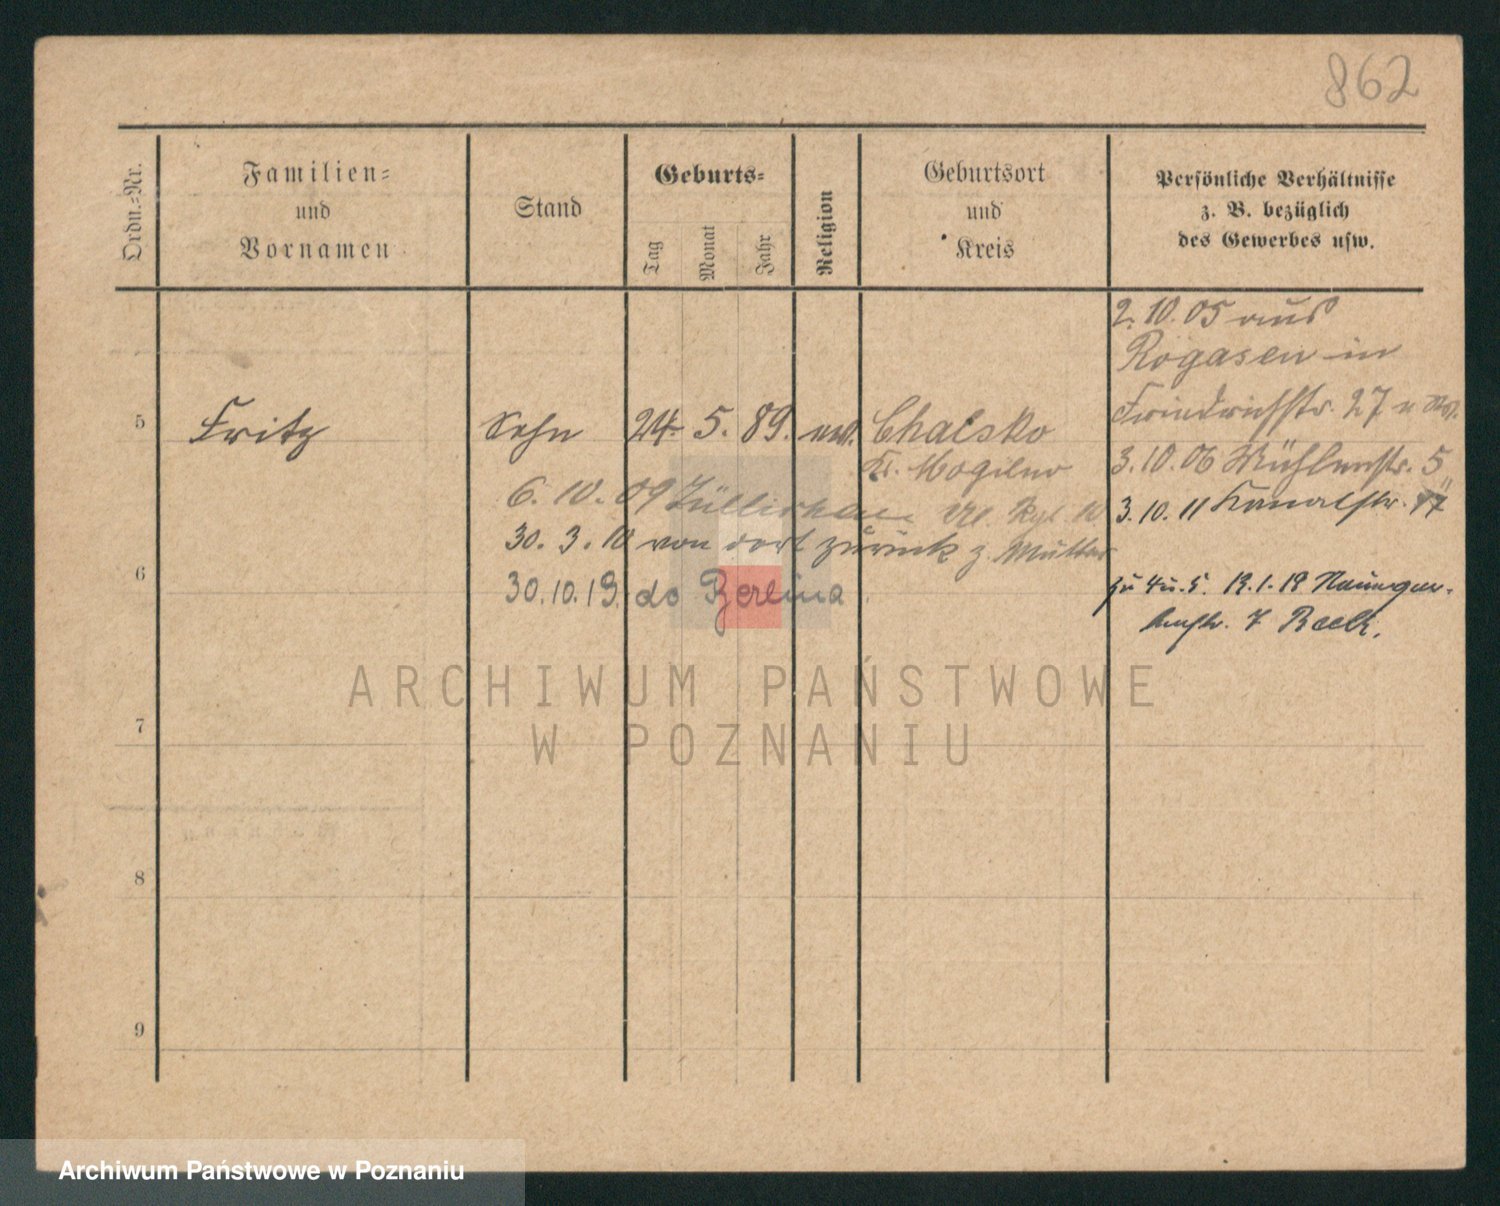 862
Ordn.=Nr.
Familien=
und
Vornamen
Stand
Geburts=
Tag
Monat
Jahr
Religion
Geburtsort
und
Kreis
Persönliche Verhältnisse
z. B. bezüglich
des Gewerbes usw.
2. 10. 05 aus
Rogasen in
Friedrichstr. 27 u.
5 Fritz Sohn 24. 5. 89. ev. Chalsko
Kr. Mogilno
3. 10. 06 Mühlenstr. 5
6. 10. 09 Züllichau
3. 10. 11 Kanalstr. 17
30. 3. 10 von dort zurück z. Mutter
6
30. 10. 19. do Berlina
zu 4 u. 5. 19.1.18
7
8
9
ARCHIWUM PAŃSTWOWE
W POZNANIU
Archiwum Państwowe w Poznaniu